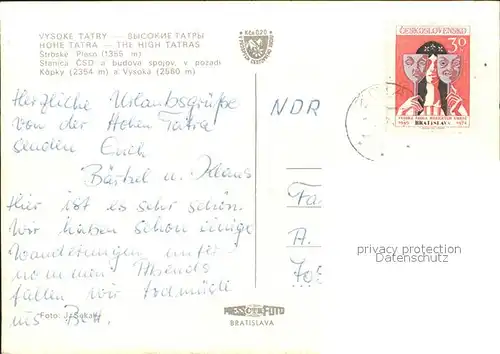 VYSOKÉ TATRY — ВЫСОКИЕ ТАТРЫ
HOHE TATRA — THE HIGH TATRAS
Štrbské Pleso (1355 m)
Stanica ČSD a budova spojov, v pozadí
Kôpky (2354 m) a Vysoká (2560 m)
Kčs 0,20
ČESKOSLOVENSKO
30
VYSOKÁ ŠKOLA MÚZICKÝCH UMENÍ
1949 BRATISLAVA 1974
Herzliche Urlaubsgrüße
von der Hohen Tatra
senden Euch
Bärbel u. Klaus
Hier ist es sehr schön.
Wir haben schon einige
Wanderungen unter-
nommen. Abends
fallen wir todmüde
ins Bett.
NDR
Fa
A.
705
privacy protection
for our customers
Foto: J. Sokal
PRESSFOTO
BRATISLAVA